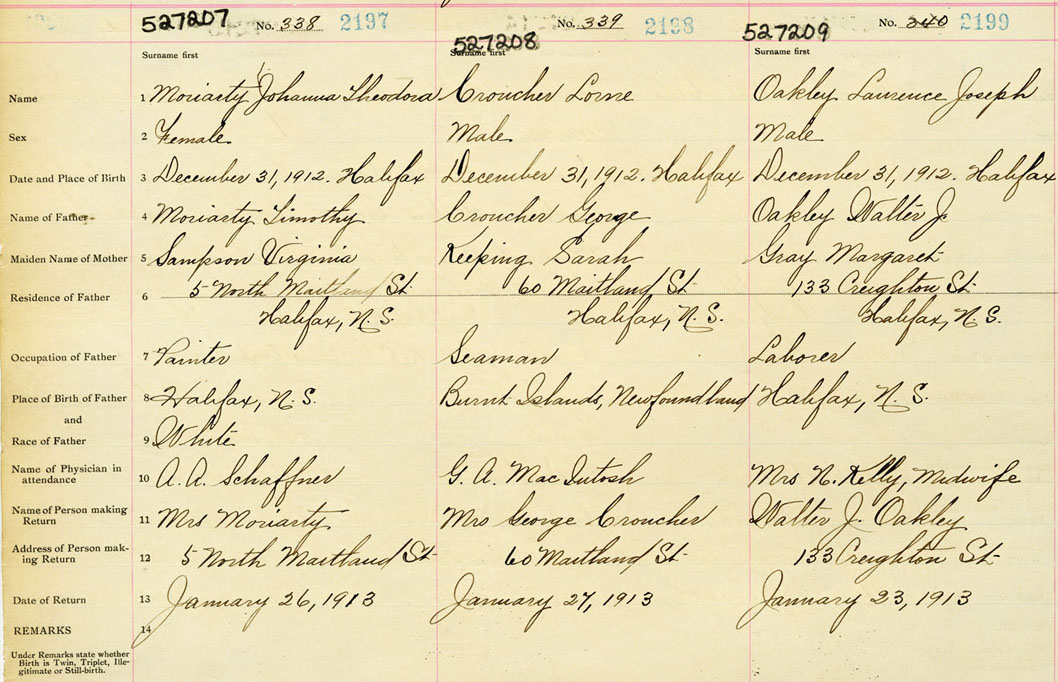 527207 No. 338 2197 527208 No. 339 2198 527209 No. 340 2199
Surname first Surname first Surname first
Name 1 Moriarty Johanna Theodora Croucher Lorne Oakley Laurence Joseph
Sex 2 Female Male Male
Date and Place of Birth 3 December 31, 1912. Halifax December 31, 1912. Halifax December 31, 1912. Halifax
Name of Father 4 Moriarty Timothy Croucher George Oakley Walter J.
Maiden Name of Mother 5 Sampson Virginia Keeping Sarah Gray Margaret
Residence of Father 6 5 North Maitland St. 60 Maitland St. 133 Creighton St.
Halifax, N.S. Halifax, N.S. Halifax, N.S.
Occupation of Father 7 Painter Seaman Laborer
Place of Birth of Father 8 Halifax, N.S. Burnt Islands, Newfoundland Halifax, N.S.
and
Race of Father 9 White
Name of Physician in
attendance 10 A.A. Schaffner G.A. MacIntosh Mrs N. Kelly, Midwife
Name of Person making
Return 11 Mrs Moriarty Mrs George Croucher Walter J. Oakley
Address of Person mak-
ing Return 12 5 North Maitland St. 60 Maitland St. 133 Creighton St.
Date of Return 13 January 26, 1913 January 27, 1913 January 23, 1913
REMARKS 14
Under Remarks state whether
Birth is Twin, Triplet, Ille-
gitimate or Still-birth.